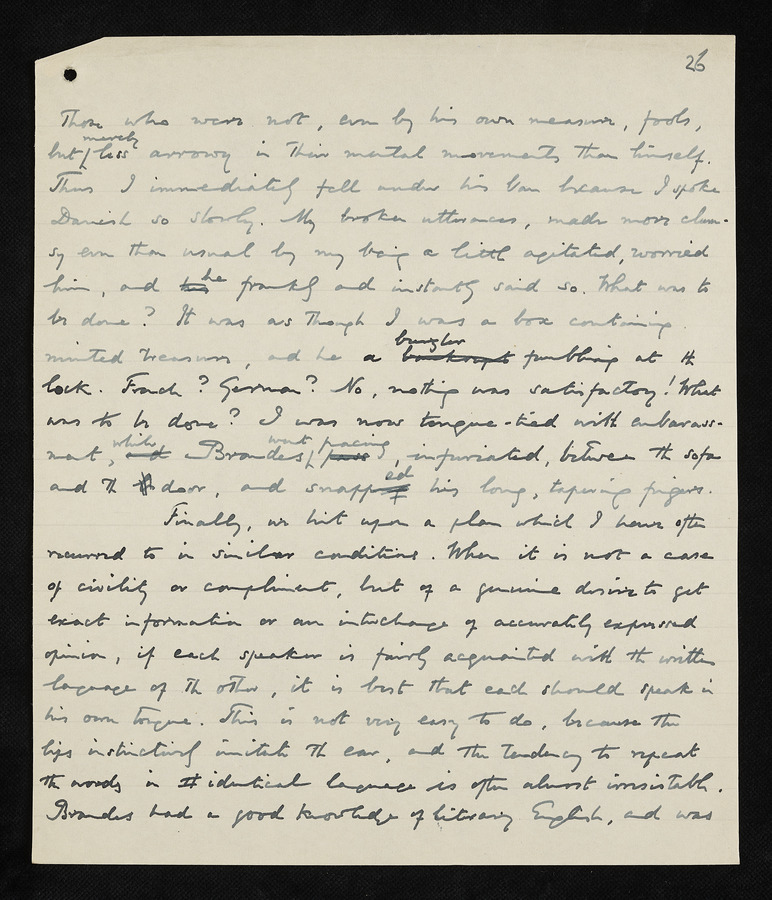 26
Those who were not, even by his own measure, fools,
but merely less arrowy in their mental movements than himself.
Thus I immediately fell under his ban because I spoke
Danish so slowly. My broken utterances, made more clum-
sy even than usual by my being a little agitated, worried
him, and he frankly and instantly said so. What was to
be done? It was as though I was a box containing
minted treasure, and he a burglar fumbling at the
lock. French? German? No, nothing was satisfactory! What
was to be done? I was now tongue-tied with embarass-
ment, while Brandes went pacing, infuriated, between the sofa
and the door, and snapped his long, tapering fingers.
Finally, we hit upon a plan which I have often
recurred to in similar conditions. When it is not a case
of civility or compliment, but of a genuine desire to get
exact information or an interchange of accurately expressed
opinion, if each speaker is fairly acquainted with the written
language of the other, it is best that each should speak in
his own tongue. This is not very easy to do, because the
lips instinctively imitate the ear, and the tendency to repeat
the words in identical language is often almost irresistible.
Brandes had a good knowledge of literary English, and was